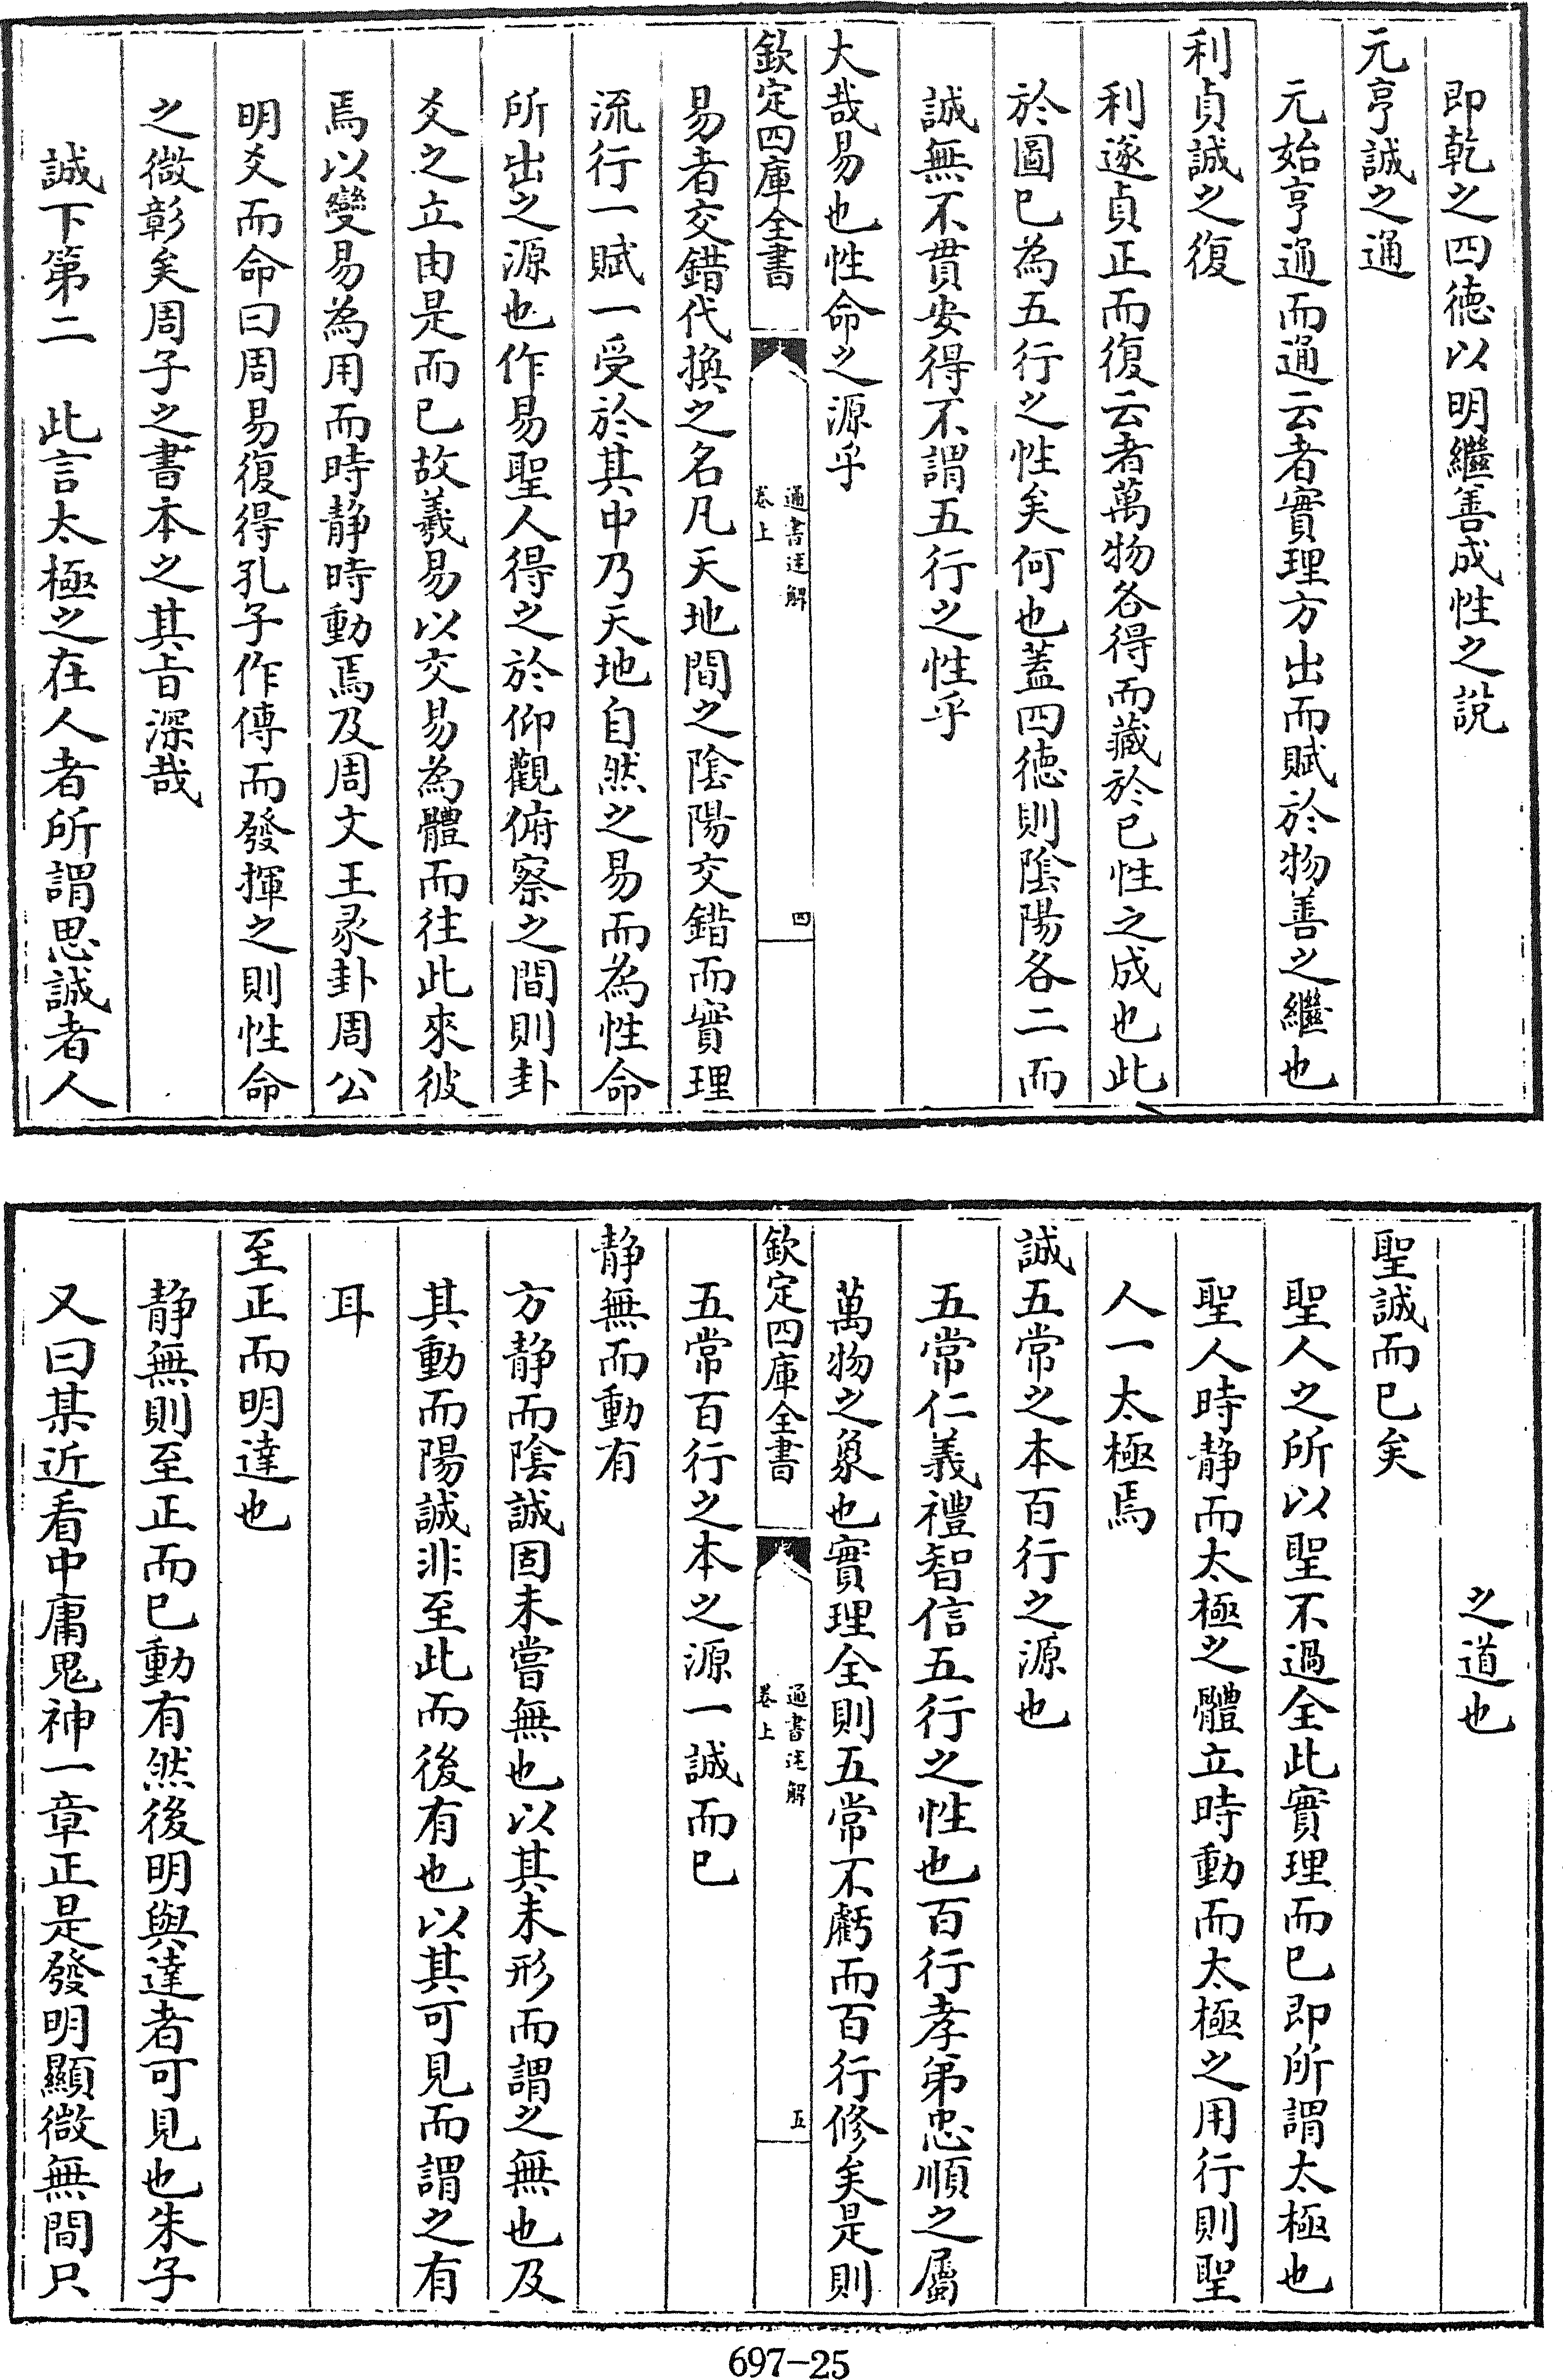 即乾之四徳以明繼善成性之說
元亨誠之通
元始亨通而通云者實理方出而賦於物善之繼也
利貞誠之復
利遂貞正而復云者萬物各得而藏於已性之成也此
於圖已為五行之性矣何也蓋四徳則陰陽各二而
誠無不貫安得不謂五行之性乎
大哉易也性命之源乎
欽定四庫全書
通書述解
卷上
四
易者交錯代換之名凡天地間之陰陽交錯而實理
流行一賦一受於其中乃天地自然之易而為性命
所出之源也作易聖人得之於仰觀俯察之間則卦
爻之立由是而已故羲易以交易為體而往此來彼
焉以變易為用而時静時動焉及周文王彖卦周公
明爻而命曰周易復得孔子作傳而發揮之則性命
之微彰矣周子之書本之其旨深哉
誠下第二　此言太極之在人者所謂思誠者人
之道也
聖誠而已矣
聖人之所以聖不過全此實理而已即所謂太極也
聖人時静而太極之體立時動而太極之用行則聖
人一太極焉
誠五常之本百行之源也
五常仁義禮智信五行之性也百行孝弟忠順之屬
萬物之象也實理全則五常不虧而百行修矣是則
欽定四庫全書
通書述解
卷上
五
五常百行之本之源一誠而已
静無而動有
方静而陰誠固未嘗無也以其未形而謂之無也及
其動而陽誠非至此而後有也以其可見而謂之有
耳
至正而明達也
静無則至正而已動有然後明與達者可見也朱子
又曰某近看中庸鬼神一章正是發明顯微無間只
697-25